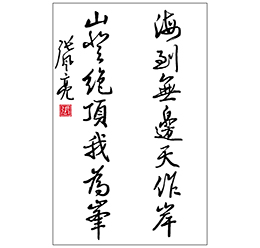 海到無邊天作岸
山登絕頂我為峯
亮